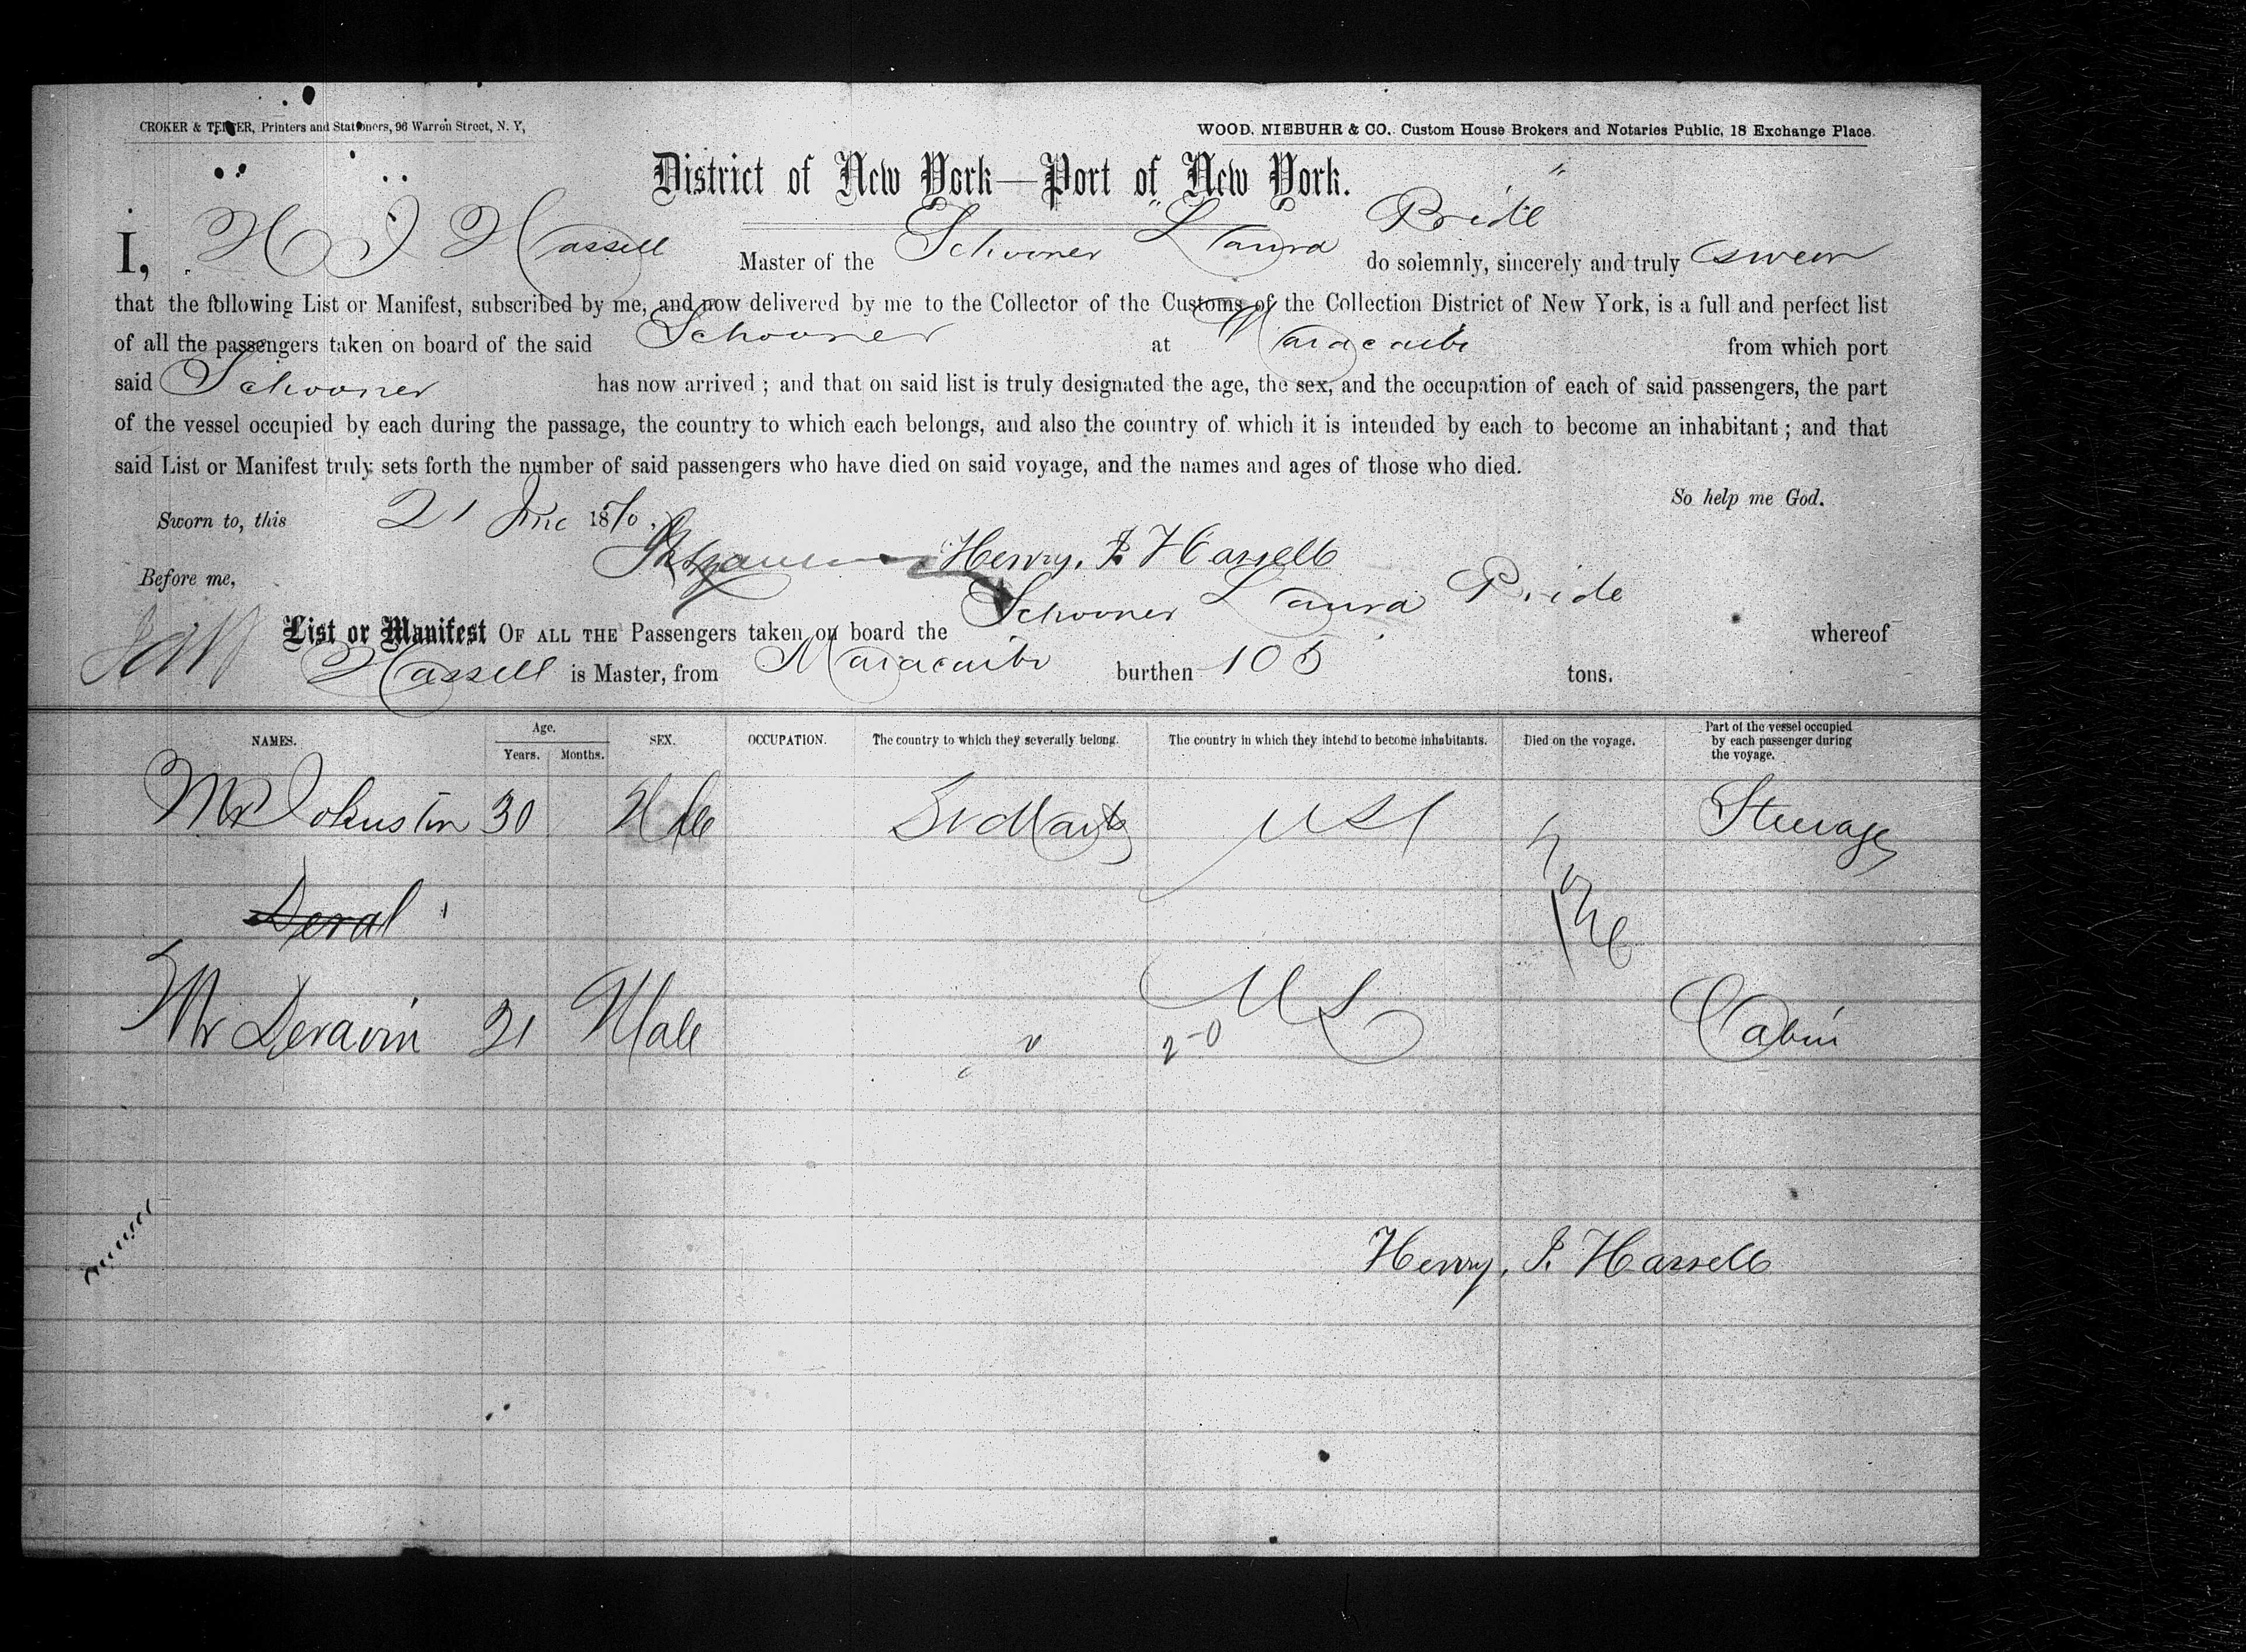 CROKER & TERTER, Printers and Stationers, 96 Warren Street, N. Y,
WOOD. NIEBUHR & CO. Custom House Brokers and Notaries Public, 18 Exchange Place.
District of New York—Port of New York.
I, H J Hassell Master of the Schooner "Laura Pride" do solemnly, sincerely and truly swear
that the following List or Manifest, subscribed by me, and now delivered by me to the Collector of the Customs of the Collection District of New York, is a full and perfect list
of all the passengers taken on board of the said Schooner at Maracaibo from which port
said Schooner has now arrived ; and that on said list is truly designated the age, the sex, and the occupation of each of said passengers, the part
of the vessel occupied by each during the passage, the country to which each belongs, and also the country of which it is intended by each to become an inhabitant ; and that
said List or Manifest truly sets forth the number of said passengers who have died on said voyage, and the names and ages of those who died.
So help me God.
Sworn to, this 21 June 1870.
Henry. J. Hassell
Before me,
List or Manifest OF ALL THE Passengers taken on board the Schooner Laura Pride whereof
Hassell is Master, from Maracaibo burthen 105 tons.
NAMES. Age. Years. Months. SEX. OCCUPATION. The country to which they severally belong. The country in which they intend to become inhabitants. Died on the voyage. Part of the vessel occupied by each passenger during the voyage.
Mr Johnston 30 Steerage
none
Deral
Mr Deravin 21 Male " U S Cabin
Henry. J. Hassell